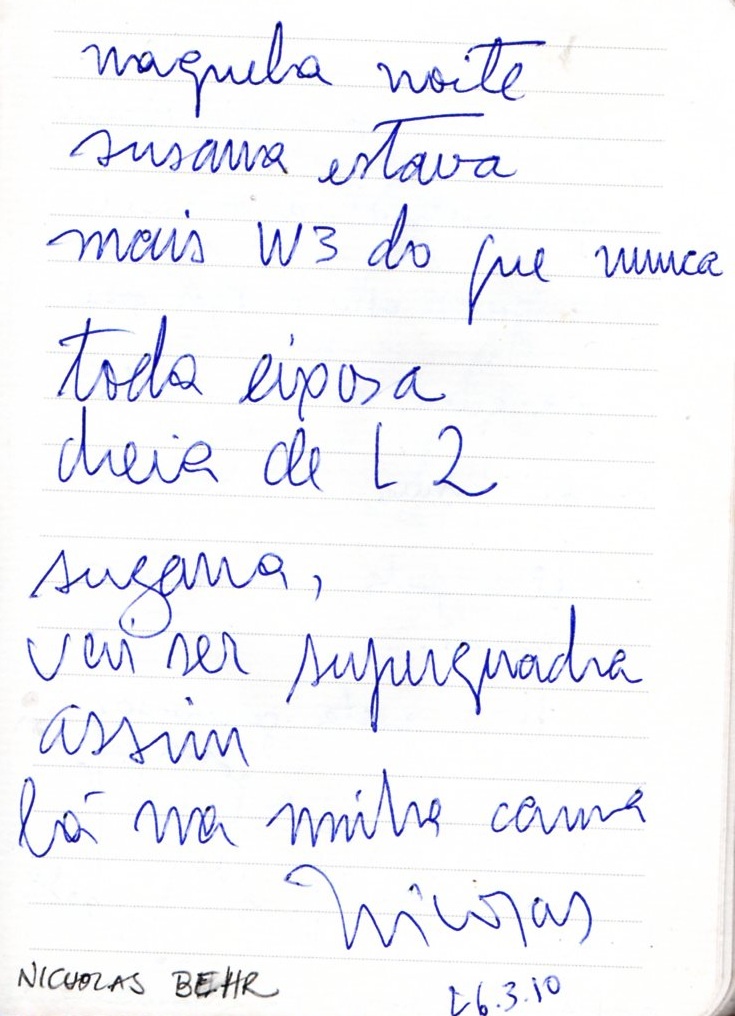 naquela noite
susana estava
mais W3 do que nunca
toda eixosa
cheia de L2
suzana,
vai ser superquadra
assim
lá na minha cama
Nicolas
NICHOLAS BEHR
26.3.10